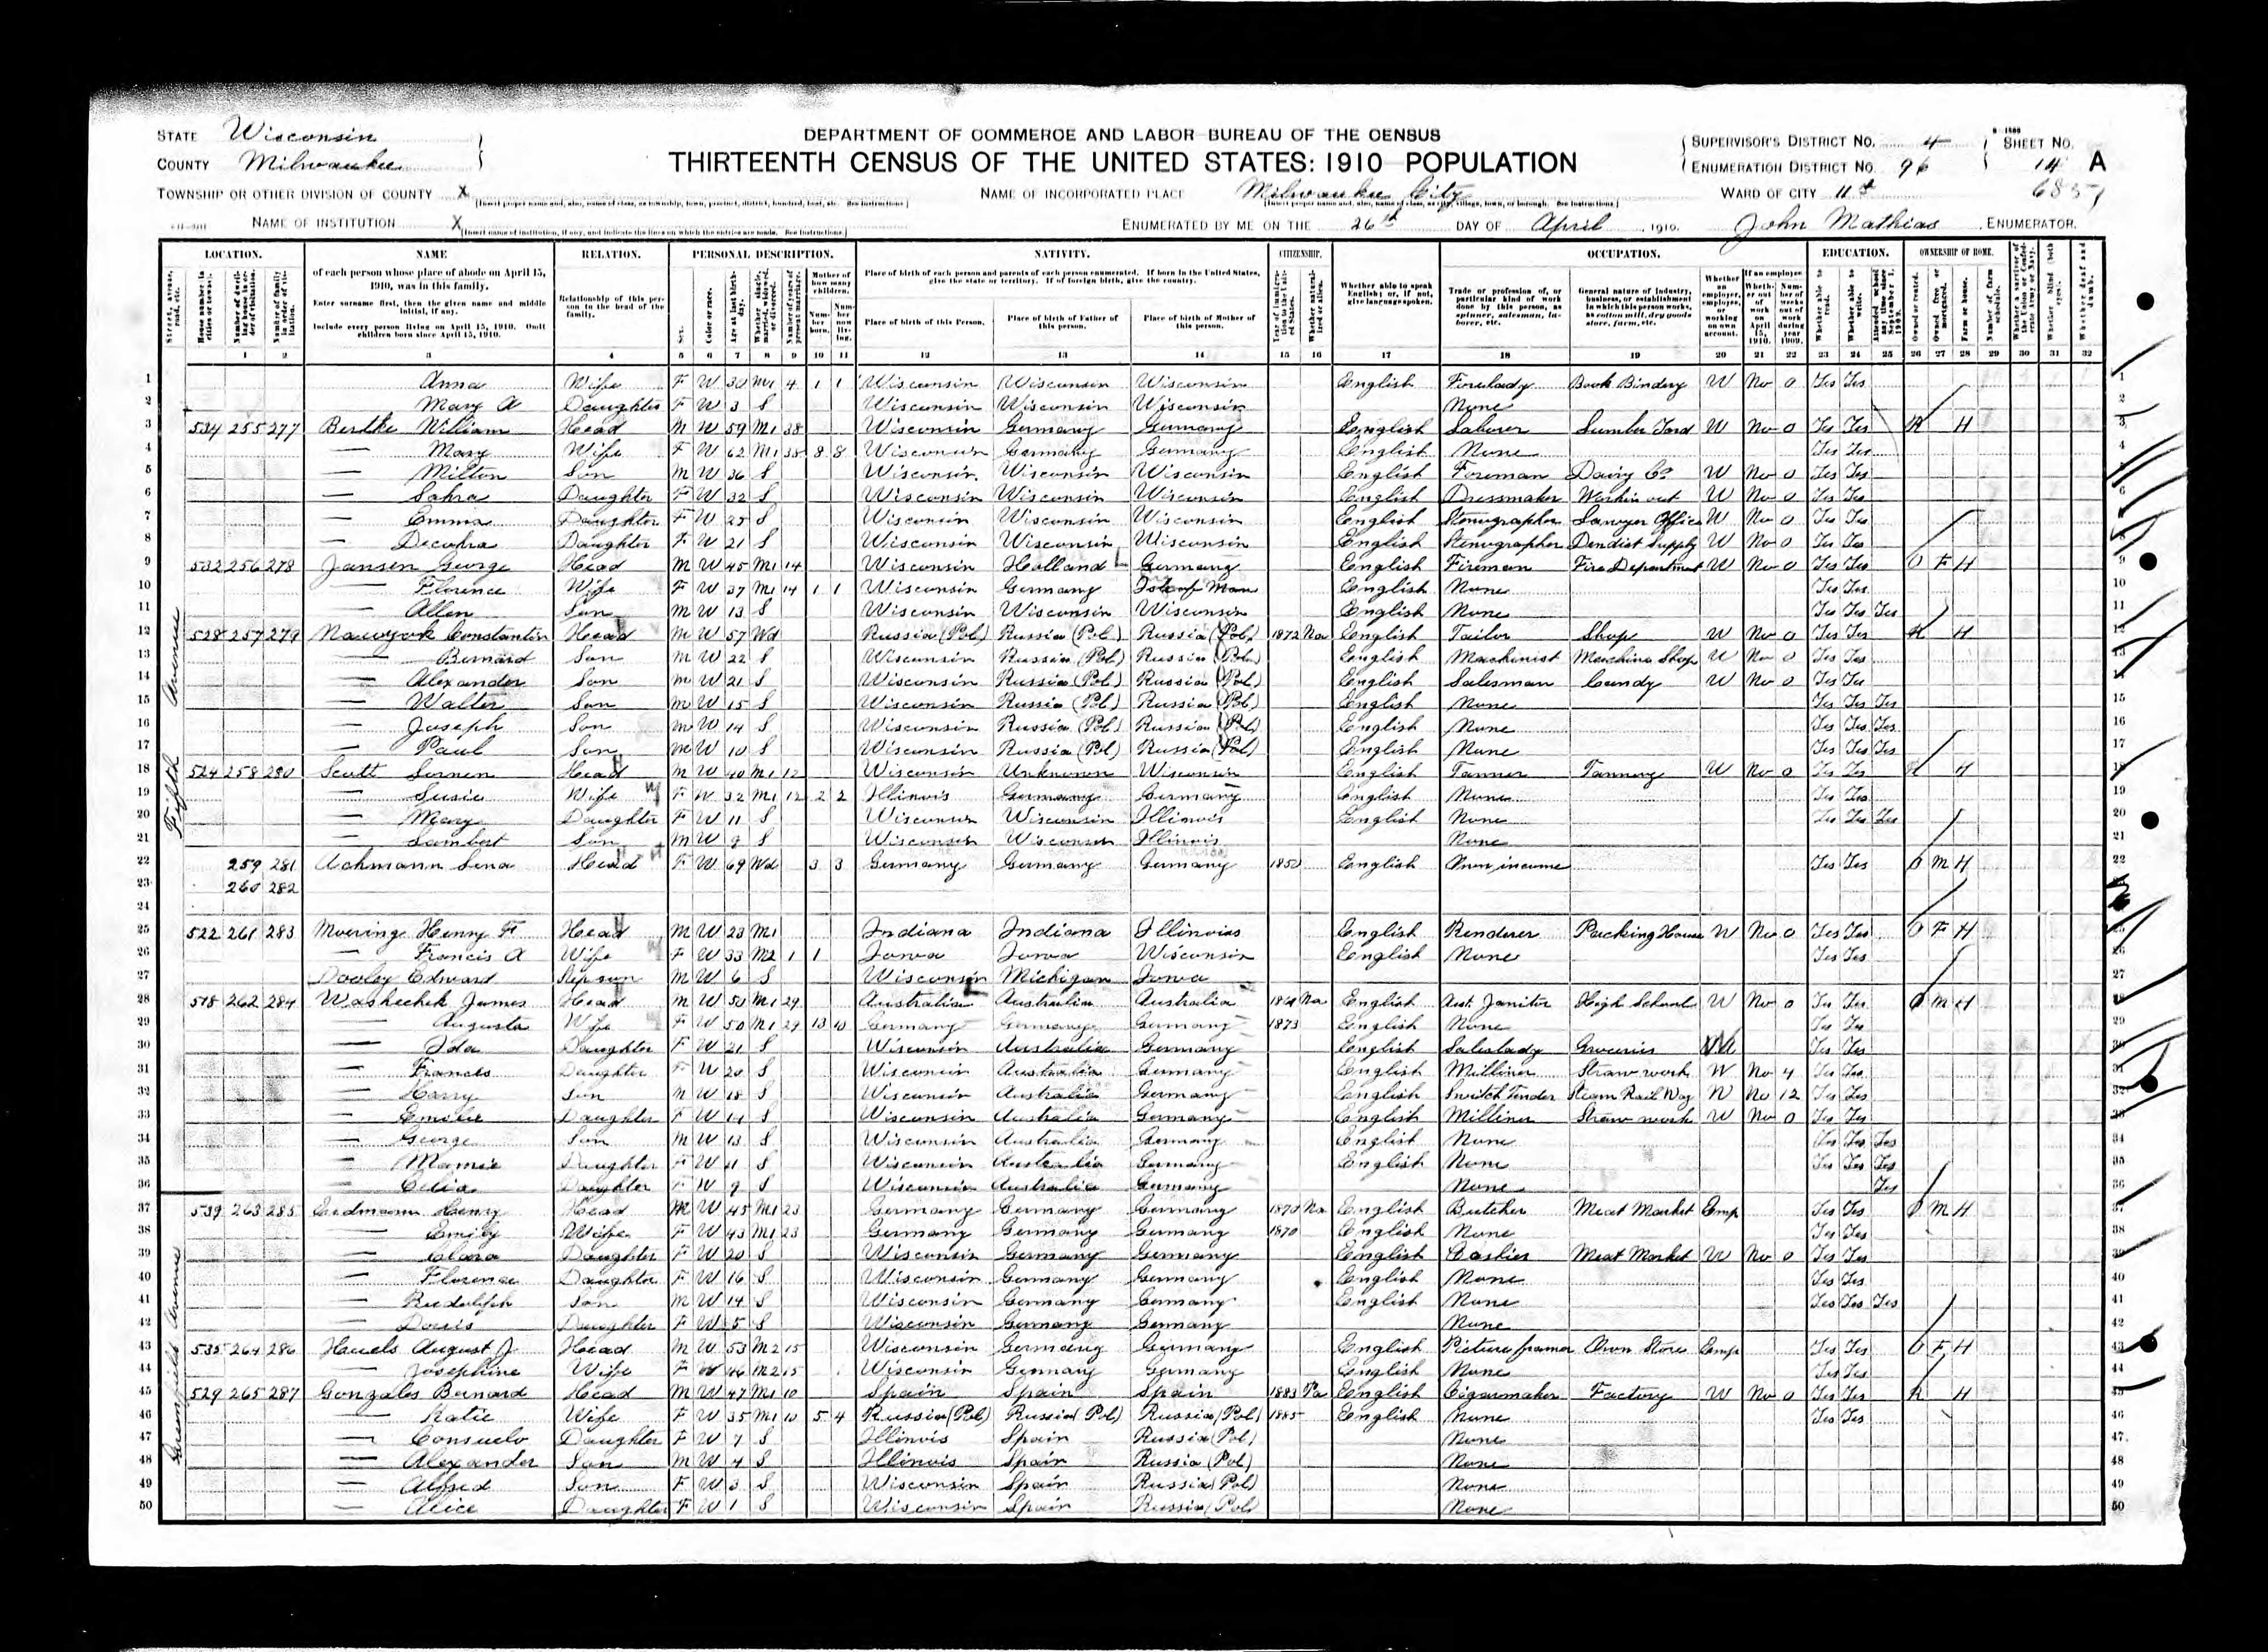 STATE Wisconsin
COUNTY Milwaukee
TOWNSHIP OR OTHER DIVISION OF COUNTY X
NAME OF INSTITUTION X
DEPARTMENT OF COMMERCE AND LABOR-BUREAU OF THE CENSUS
THIRTEENTH CENSUS OF THE UNITED STATES: 1910 POPULATION
NAME OF INCORPORATED PLACE Milwaukee City
ENUMERATED BY ME ON THE 26th DAY OF April, 1910. John Mathias, ENUMERATOR.
SUPERVISOR'S DISTRICT No. 4 SHEET No.
ENUMERATION DISTRICT No. 96 14 A
WARD OF CITY 11th
LOCATION. NAME RELATION. PERSONAL DESCRIPTION. NATIVITY. CITIZENSHIP. OCCUPATION. EDUCATION. OWNERSHIP OF HOME.
of each person whose place of abode on April 15, 1910, was in this family.
Enter surname first, then the given name and middle initial, if any.
Include every person living on April 15, 1910. Omit children born since April 15, 1910.
Relationship of this person to the head of the family.
Place of birth of each person and parents of each person enumerated. If born in the United States, give the state or territory. If of foreign birth, give the country.
Place of birth of this Person. Place of birth of Father of this person. Place of birth of Mother of this person.
Whether able to speak English; or, if not, give language spoken.
1 2 3 4 5 6 7 8 9 10 11 12 13 14 15 16 17 18 19 20 21 22 23 24 25 26 27 28 29 30 31 32
Fifth Avenue
1 Anna Wife F W 30 M1 4 1 1 Wisconsin Wisconsin Wisconsin English Forelady Book Bindery W No 0 Yes Yes
2 Mary A Daughter F W 3 S Wisconsin Wisconsin Wisconsin None
3 534 255 277 William Head M W 59 M1 38 Wisconsin Germany Germany English Laborer Lumber Yard W No 0 Yes Yes R H
4 — Mary Wife F W 62 M1 38 8 8 Wisconsin Germany Germany English None Yes Yes
5 — Milton Son M W 36 S Wisconsin Wisconsin Wisconsin English Foreman Dairy Co W No 0 Yes Yes
6 — Sahra Daughter F W 32 S Wisconsin Wisconsin Wisconsin English Dressmaker Workin out W No 0 Yes Yes
7 — Emma Daughter F W 25 S Wisconsin Wisconsin Wisconsin English Stenographer Lawyer Office W No 0 Yes Yes
8 — Daughter F W 21 S Wisconsin Wisconsin Wisconsin English Stenographer Dendist Supply W No 0 Yes Yes
9 532 256 278 Jansen George Head M W 45 M1 14 Wisconsin Holland Germany English Fireman Fire Department W No 0 Yes Yes O F H
10 — Florence Wife F W 37 M1 14 1 1 Wisconsin Germany Isle of Man English None Yes Yes
11 — Allen Son M W 13 S Wisconsin Wisconsin Wisconsin English None Yes Yes Yes
12 528 257 279 Constantin Head M W 57 Wd Russia (Pol) Russia (Pol) Russia (Pol) 1872 Na English Tailor Shop W No 0 Yes Yes R H
13 — Bernard Son M W 22 S Wisconsin Russia (Pol) Russia (Pol) English Machinist Machine Shop W No 0 Yes Yes
14 — Alexander Son M W 21 S Wisconsin Russia (Pol) Russia (Pol) English Salesman Candy W No 0 Yes Yes
15 — Walter Son M W 15 S Wisconsin Russia (Pol) Russia (Pol) English None Yes Yes Yes
16 — Joseph Son M W 14 S Wisconsin Russia (Pol) Russia (Pol) English None Yes Yes Yes
17 — Paul Son M W 10 S Wisconsin Russia (Pol) Russia (Pol) English None Yes Yes Yes
18 524 258 280 Scott Head M W 40 M1 12 Wisconsin Unknown Wisconsin English Tanner Tannery W No 0 Yes Yes R H
19 — Susie Wife F W 32 M1 12 2 2 Illinois Germany Germany English None Yes Yes
20 — Mary Daughter F W 11 S Wisconsin Wisconsin Illinois English None Yes Yes Yes
21 — Lambert Son M W 9 S Wisconsin Wisconsin Illinois None
22 259 281 Achmann Lena Head F W 69 Wd 3 3 Germany Germany Germany 1850 English Own income Yes Yes O M H
23 260 282
24
25 522 261 283 Moering Henry F Head M W 23 M1 Indiana Indiana Illinois English Renderer Packing House W No 0 Yes Yes O F H
26 — Francis A Wife F W 33 M2 1 1 Iowa Iowa Wisconsin English None Yes Yes
27 Dooley Edward Stepson M W 6 S Wisconsin Michigan Iowa
28 518 262 284 Washechek James Head M W 50 M1 29 Australia Australia Australia Na English Asst. Janitor High School W No 0 Yes Yes O M H
29 — Augusta Wife F W 50 M1 29 13 10 Germany Germany Germany 1873 English None Yes Yes
30 — Ida Daughter F W 21 S Wisconsin Australia Germany English Saleslady Groceries Yes Yes
31 — Frances Daughter F W 20 S Wisconsin Australia Germany English Milliner Straw work W No 4 Yes Yes
32 — Harry Son M W 18 S Wisconsin Australia Germany English Switch Tender Steam Rail Way W No 12 Yes Yes
33 — Emilie Daughter F W S Wisconsin Australia Germany English Milliner Straw work W No 0 Yes Yes
34 — George Son M W 13 S Wisconsin Australia Germany English None Yes Yes Yes
35 — Mamie Daughter F W 11 S Wisconsin Australia Germany English None Yes Yes Yes
36 — Celia Daughter F W 9 S Wisconsin Australia Germany None Yes
Greenfield Avenue
37 539 263 285 Erdmann Henry Head M W 45 M1 23 Germany Germany Germany Na English Butcher Meat Market Emp Yes Yes O M H
38 — Emily Wife F W 43 M1 23 Germany Germany Germany 1870 English None Yes Yes
39 — Clara Daughter F W 20 S Wisconsin Germany Germany English Cashier Meat Market W No 0 Yes Yes
40 — Florence Daughter F W 16 S Wisconsin Germany Germany English None Yes Yes
41 — Rudolph Son M W 14 S Wisconsin Germany Germany English None Yes Yes Yes
42 — Doris Daughter F W 5 S Wisconsin Germany Germany None
43 535 264 286 August J. Head M W 53 M2 15 Wisconsin Germany Germany English Picture framer Own Store Emp Yes Yes O F H
44 — Josephine Wife F W 46 M2 15 Wisconsin Germany Germany English None Yes Yes
45 529 265 287 Gonzales Bernard Head M W 47 M1 10 Spain Spain Spain 1883 Pa English Cigarmaker Factory W No 0 Yes Yes R H
46 — Katie Wife F W 35 M1 10 5 4 Russia (Pol) Russia (Pol) Russia (Pol) 1885 English None Yes Yes
47 — Consuelo Daughter F W 7 S Illinois Spain Russia (Pol) None
48 — Alexander Son M W 4 S Illinois Spain Russia (Pol) None
49 — Alfred Son F W 3 S Wisconsin Spain Russia (Pol) None
50 — Alice Daughter F W 1 S Wisconsin Spain Russia (Pol) None